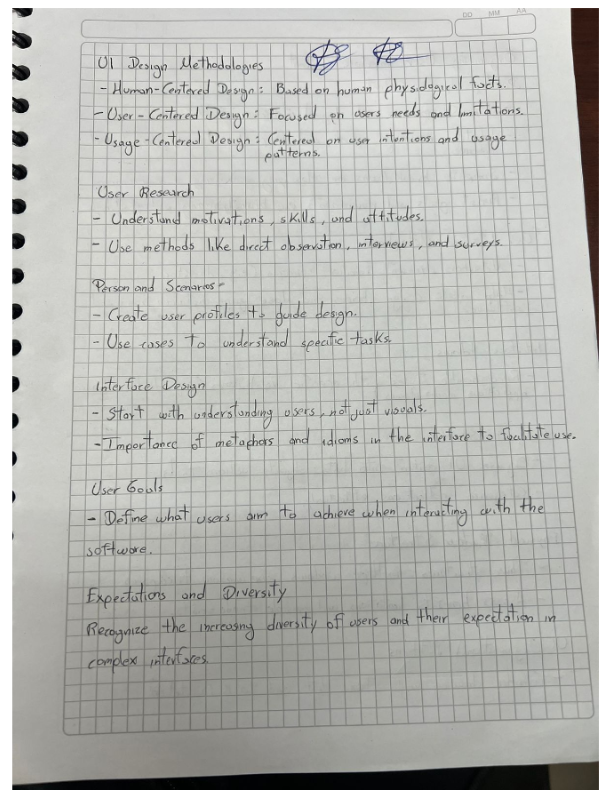 DD MM AA
UI Design Methodologies
- Human-Centered Design: Based on human physiological facts.
- User-Centered Design: Focused on users needs and limitations.
- Usage-Centered Design: Centered on user intentions and usage
patterns.
User Research
- Understand motivations, skills, and attitudes.
- Use methods like direct observation, interviews, and surveys.
Person and Scenarios-
- Create user profiles to guide design.
- Use cases to understand specific tasks.
Interface Design
- Start with understanding users, not just visuals.
- Importance of metaphors and idioms in the interface to facilitate use.
User Goals
- Define what users aim to achieve when interacting with the
software.
Expectations and Diversity
Recognize the increasing diversity of users and their expectation in
complex interfaces.